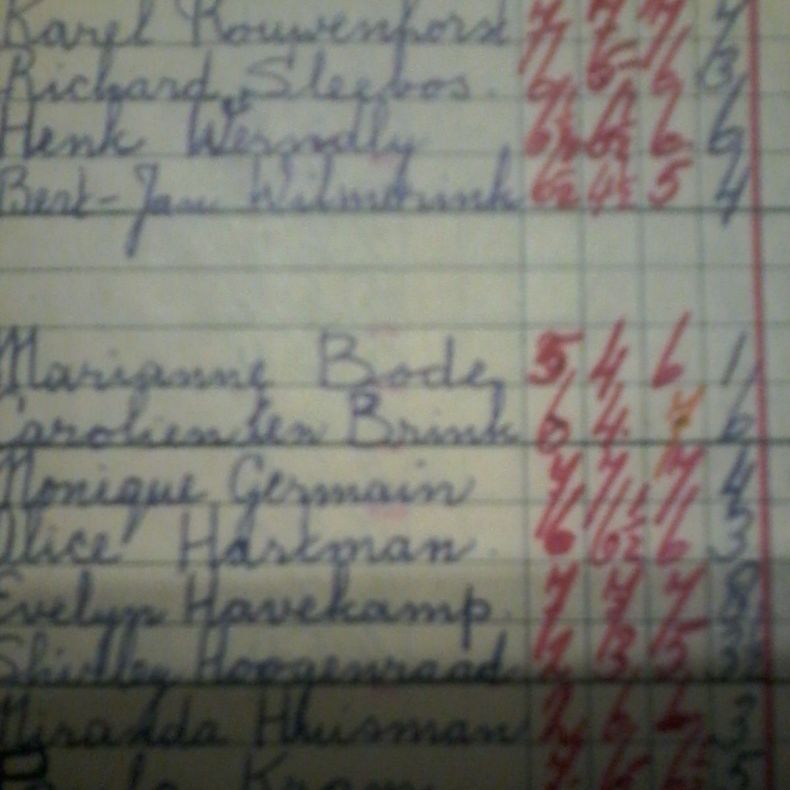 Karel Rouwenhorst 7 7 7 7
Richard Sleebos. 3
Henk Werndly 6½ 6½ 6 6
Bert-Jan Wilmbrink 6½ 4½ 5 4
Marianne Bode 5 4 6 1
Carolien ten Brink 6 4 6
Monique Germain 7 7 7 4
Alice Hartman. 6 6½ 6 3
Evelyn Havekamp. 7 7 7 8
Shirley Hoogenraad 5 3
Miranda Huisman 3
5